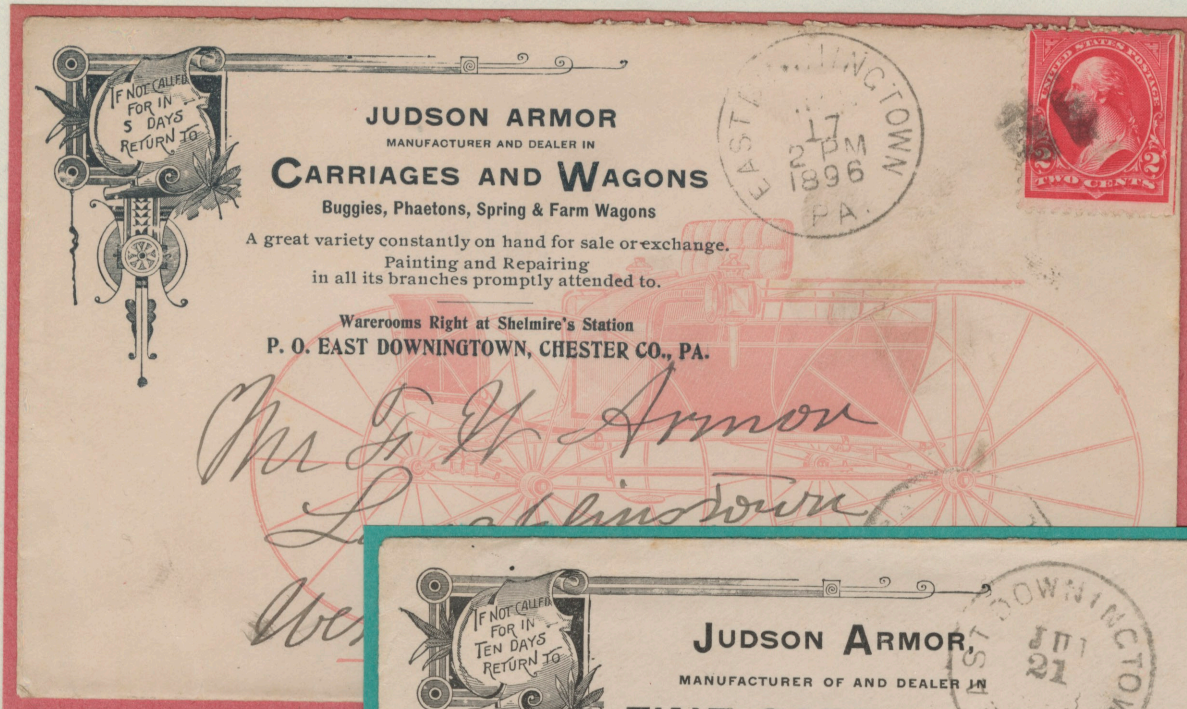 IF NOT CALLED
FOR IN
5 DAYS
RETURN TO
JUDSON ARMOR
MANUFACTURER AND DEALER IN
CARRIAGES AND WAGONS
Buggies, Phaetons, Spring & Farm Wagons
A great variety constantly on hand for sale or exchange.
Painting and Repairing
in all its branches promptly attended to.
Warerooms Right at Shelmire's Station
P. O. EAST DOWNINGTOWN, CHESTER CO., PA.
EAST
17
2 PM
1896
PA.
UNITED STATES POSTAGE
2 2
TWO CENTS
Mr F W Armor
Laughlinstown
IF NOT CALLED
FOR IN
TEN DAYS
RETURN TO
JUDSON ARMOR,
MANUFACTURER OF AND DEALER IN
JUL
21